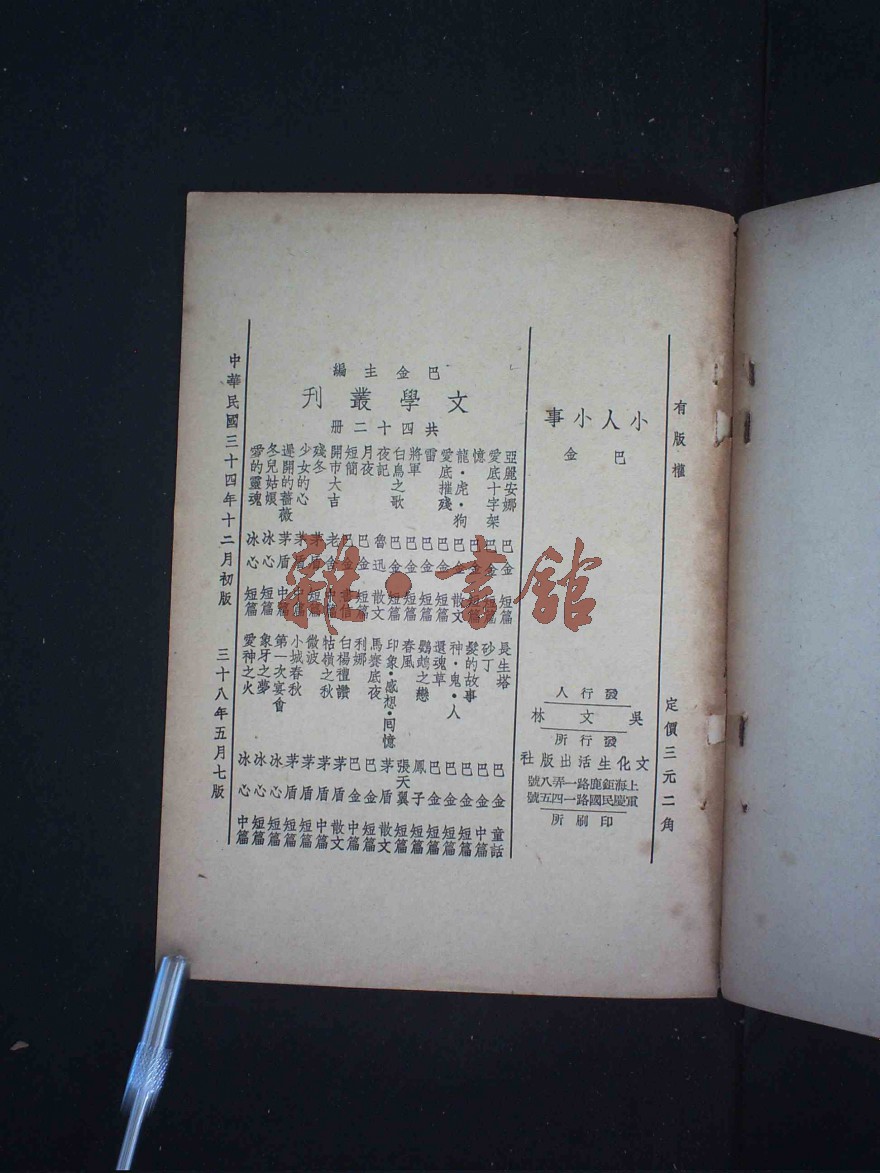 有版權
定價三元二角
小人小事
巴金
發行人
吳文林
發行所
文化生活出版社
上海鉅鹿路一弄八號
重慶民國路一四五號
印刷所
巴金主編
文學叢刊
共四十二冊
亞麗安娜 巴金 短篇
愛底十字架 巴金 短篇
憶 巴金 短篇
龍・虎・狗 巴金 散文
愛底摧殘 巴金 短篇
雷 巴金 短篇
將軍 巴金 短篇
白鳥之歌 巴金 短篇
夜記 魯迅 散文
月夜 巴金 短篇
短簡 巴金 書信
開市大吉 老舍
殘冬 茅盾 短篇
少女的心 茅盾 中篇
遲開的薔薇 茅盾 中篇
冬兒姑娘 冰心 短篇
愛的靈魂 冰心 短篇
長生塔 巴金 童話
砂丁 巴金 中篇
髮的故事 巴金 短篇
神・鬼・人 巴金 短篇
還魂草 巴金 短篇
鸚鵡之戀 鳳子 短篇
春風 張天翼 短篇
印象・感想・囘憶 茅盾 散文
馬賽底夜 巴金 短篇
利娜 巴金 中篇
白楊禮讚 茅盾 散文
牯嶺之秋 茅盾 中篇
微波 茅盾 短篇
小城春秋 茅盾 短篇
第一次宴會 冰心 短篇
象牙之夢 冰心 短篇
愛神之火 冰心 中篇
中華民國三十四年十二月初版 三十八年五月七版
雜・書館